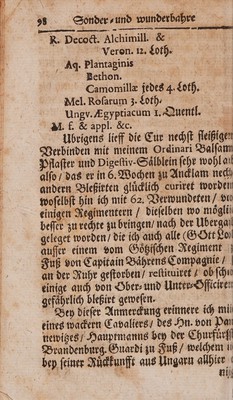 98 Sonder- und wunderbahre
R. Decoct. Alchimill. &
Veron. 12. Loth.
Aq. Plantaginis
Bethon.
Camomillæ jedes 4. Loth.
Mel. Rosarum 3. Loth.
Ungv. Ægyptiacum 1. Quentl.
M. f. & appl. &c.
Ubrigens lieff die Cur nechst fleißigen
Verbinden mit meinem Ordinari Balsam
Pflaster und Digestiv-Sälblein sehr wohl ab
also / daß er in 6. Wochen zu Ancklam nechst
andern Bleßirten glücklich curiret worden
woselbst ihn ich mit 62. Verwundeten / von
einigen Regimentern / dieselben wo möglich
besser zu rechte zu bringen / nach der Ubergab
geleget worden / die ich auch alle (GOtt Lob)
ausser einem vom Götzischen Regiment
Fuß von Capitain Bährens Compagnie /
an der Ruhr gestorben / restituiret / ob schon
einige auch von Ober- und Unter-Officiren
gefährlich bleßiret gewesen.
Bey dieser Anmerckung erinnere ich mich
eines wackern Cavaliers / des Hn. von Pan
newitzes / Hauptmanns bey der Churfürstl
Brandenburg. Guardi zu Fuß / welchem
bey seiner Rückkunfft aus Ungarn allhier